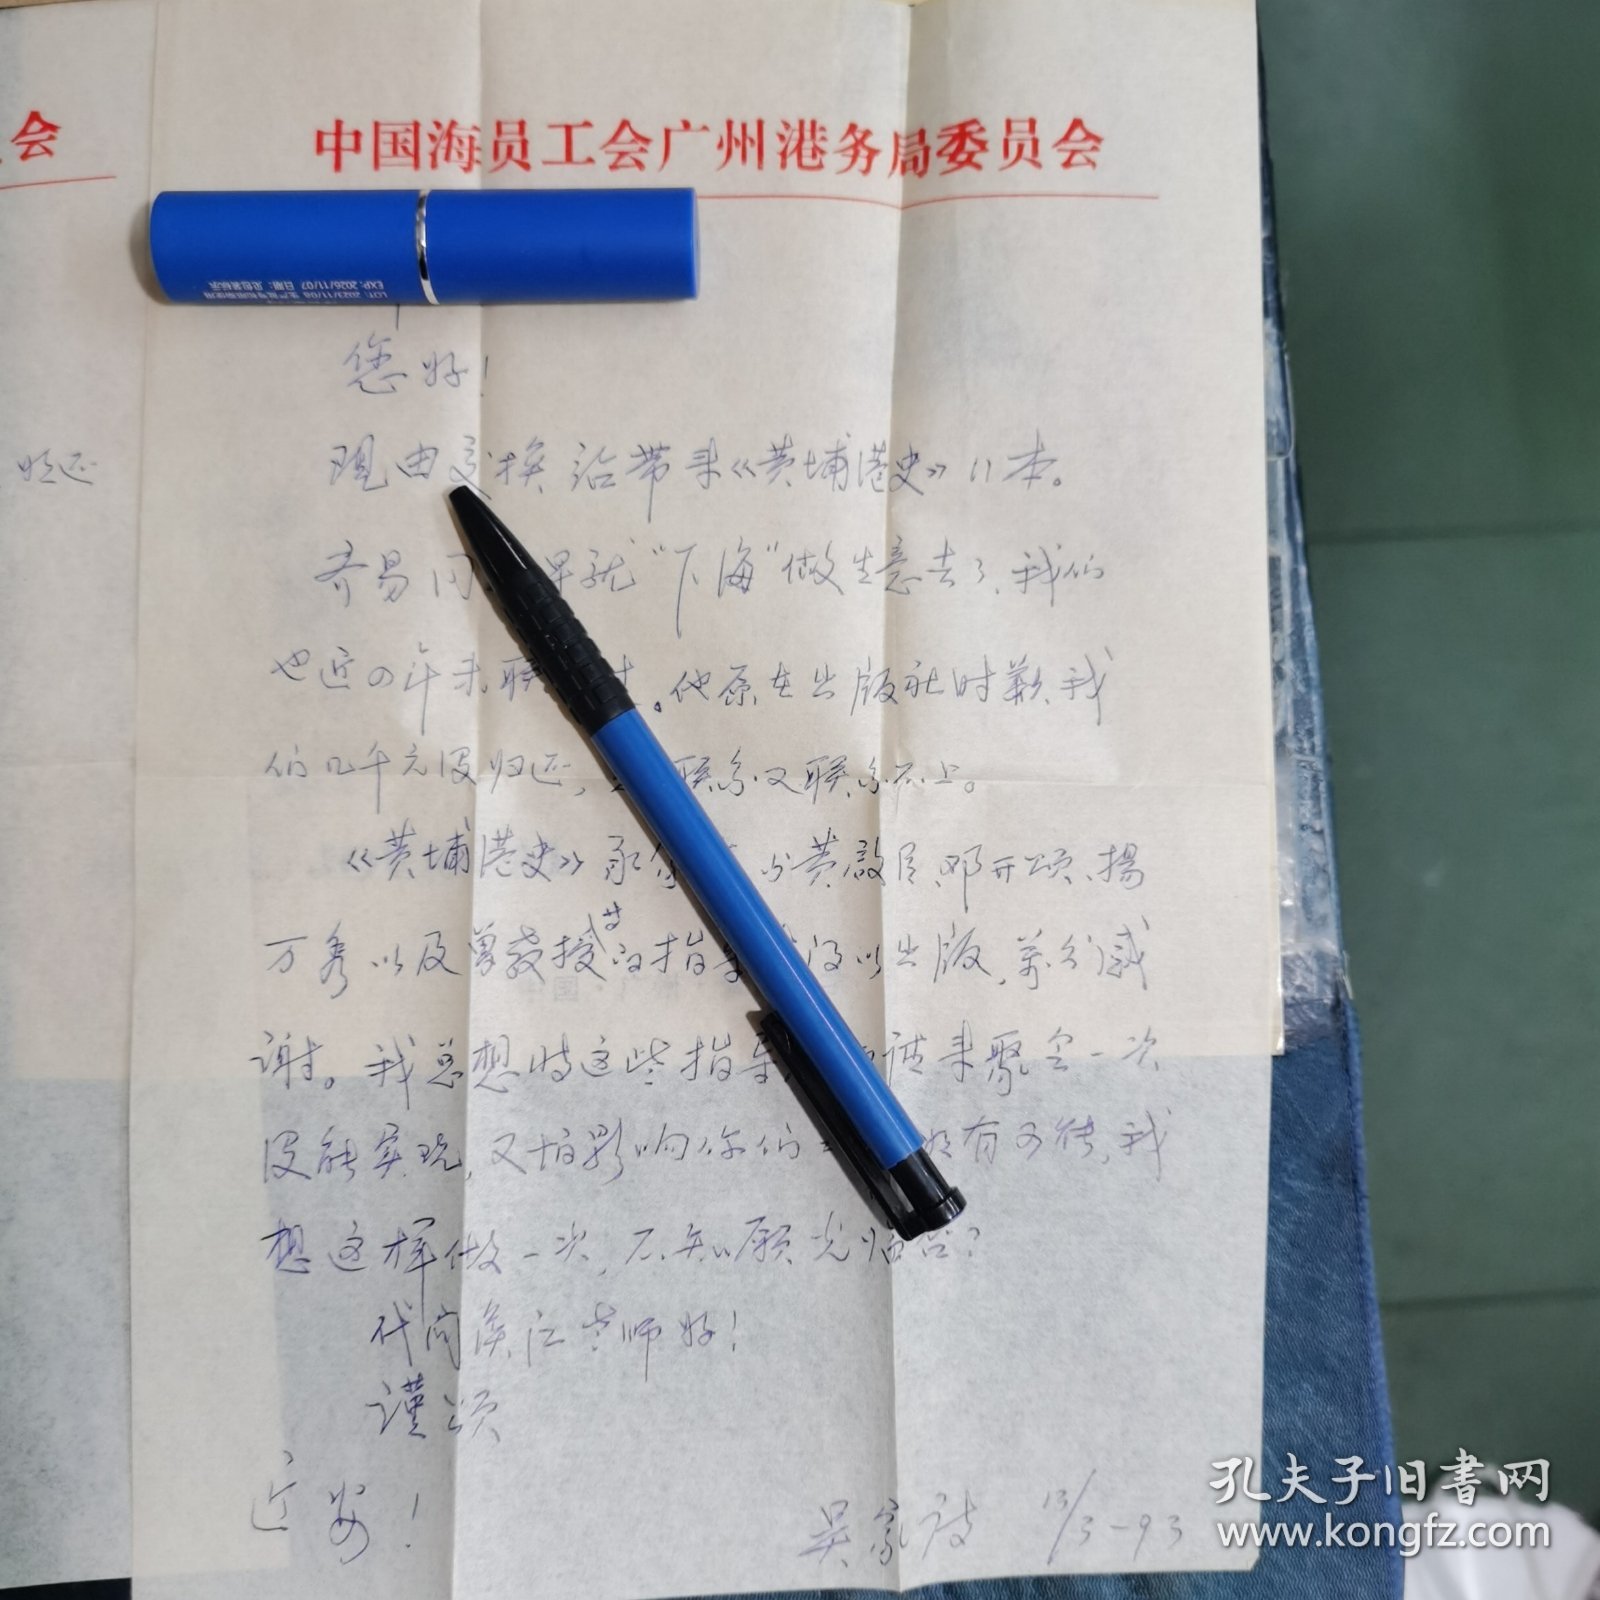 会
中国海员工会广州港务局委员会
LOT: 2023/11/08 生产批号和限期使用
EXP: 2026/11/07 日期：见包装标示
您好！
归还
现由交换站带来《黄埔港史》11本。
齐易同 早就“下海”做生意去了，我们
也近四年未联 。他原在出版社时欠我
们几千元没归还， 联系又联系不上。
《黄埔港史》承 黄启臣、邓开颂、杨
万秀以及曾教授等的指导 得以出版，万分感
谢。我总想将这些指导 请来聚会一次
没能实现，又怕影响你们 有可能，我
想这样做一次，不知愿光临否？
代问 老师好！
谨颂
近安！
吴家诗 13/3-93
孔夫子旧书网
www.kongfz.com